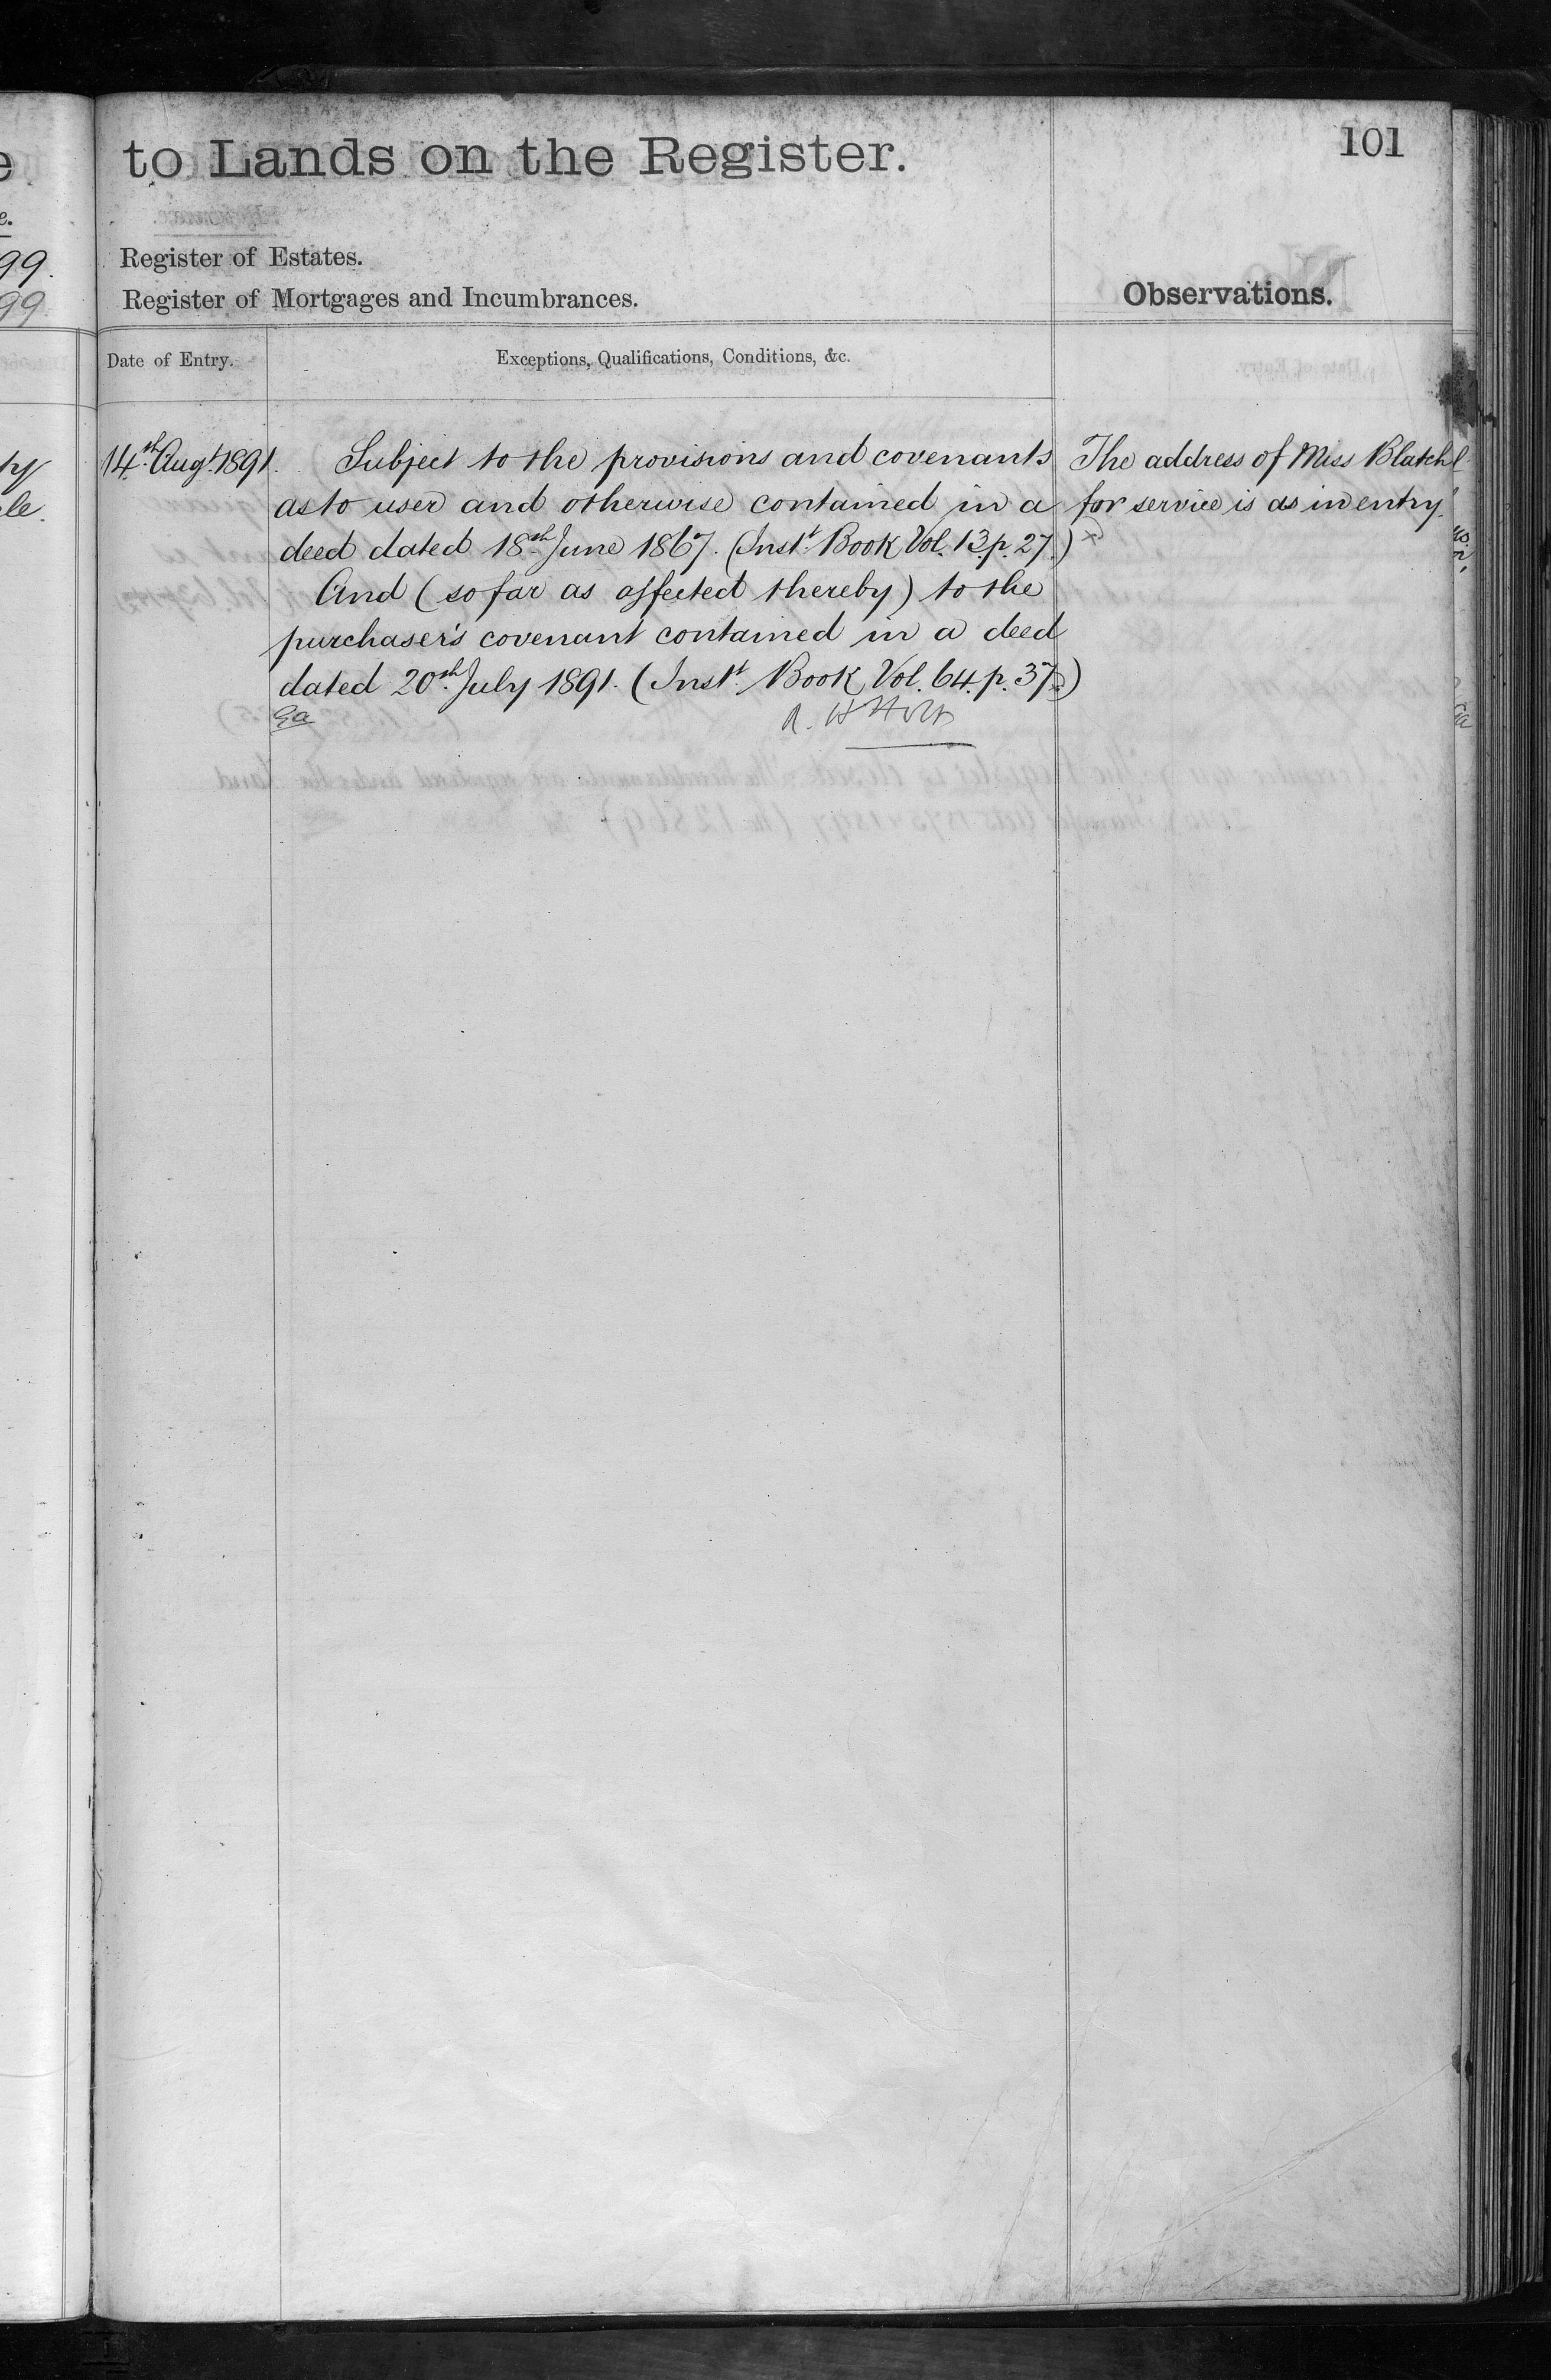 to Lands on the Register.
101
Register of Estates.
Register of Mortgages and Incumbrances.
Observations.
Date of Entry.
Exceptions, Qualifications, Conditions, &c.
99.
99
14th Augt. 1891.
Subject to the provisions and covenants
as to user and otherwise contained in a
deed dated 18th June 1867. (Instt. Book Vol. 13. p. 27.)
And (so far as affected thereby) to the
purchaser's covenant contained in a deed
dated 20th July 1891. (Instt. Book Vol. 64. p. 37.)
The address of Miss Blatchl
for service is as in entry.